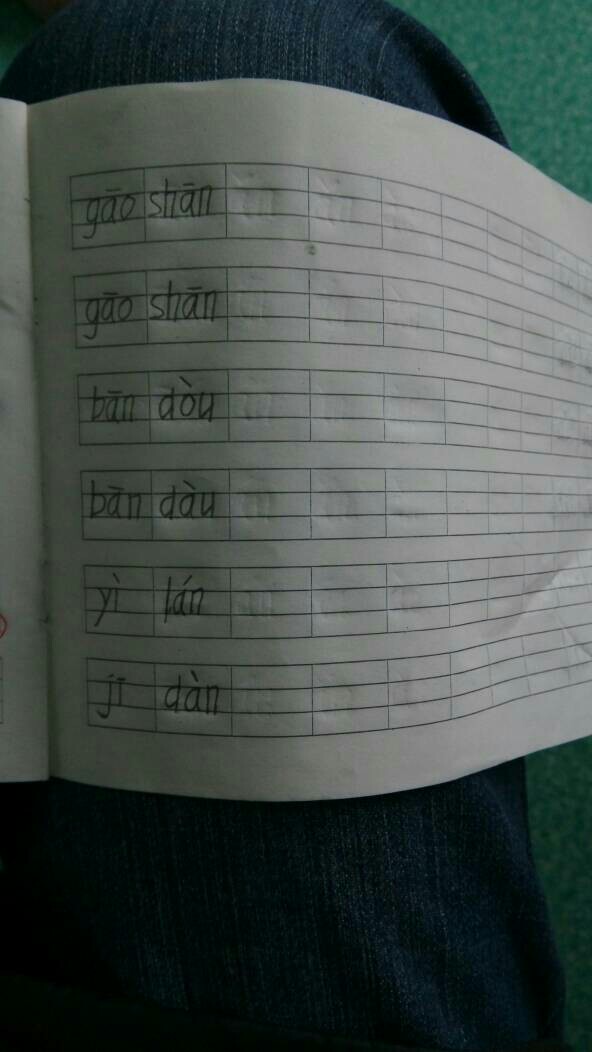 gāo shān
gāo shān
bān dòu
bān dàu
yì lán
jī dàn